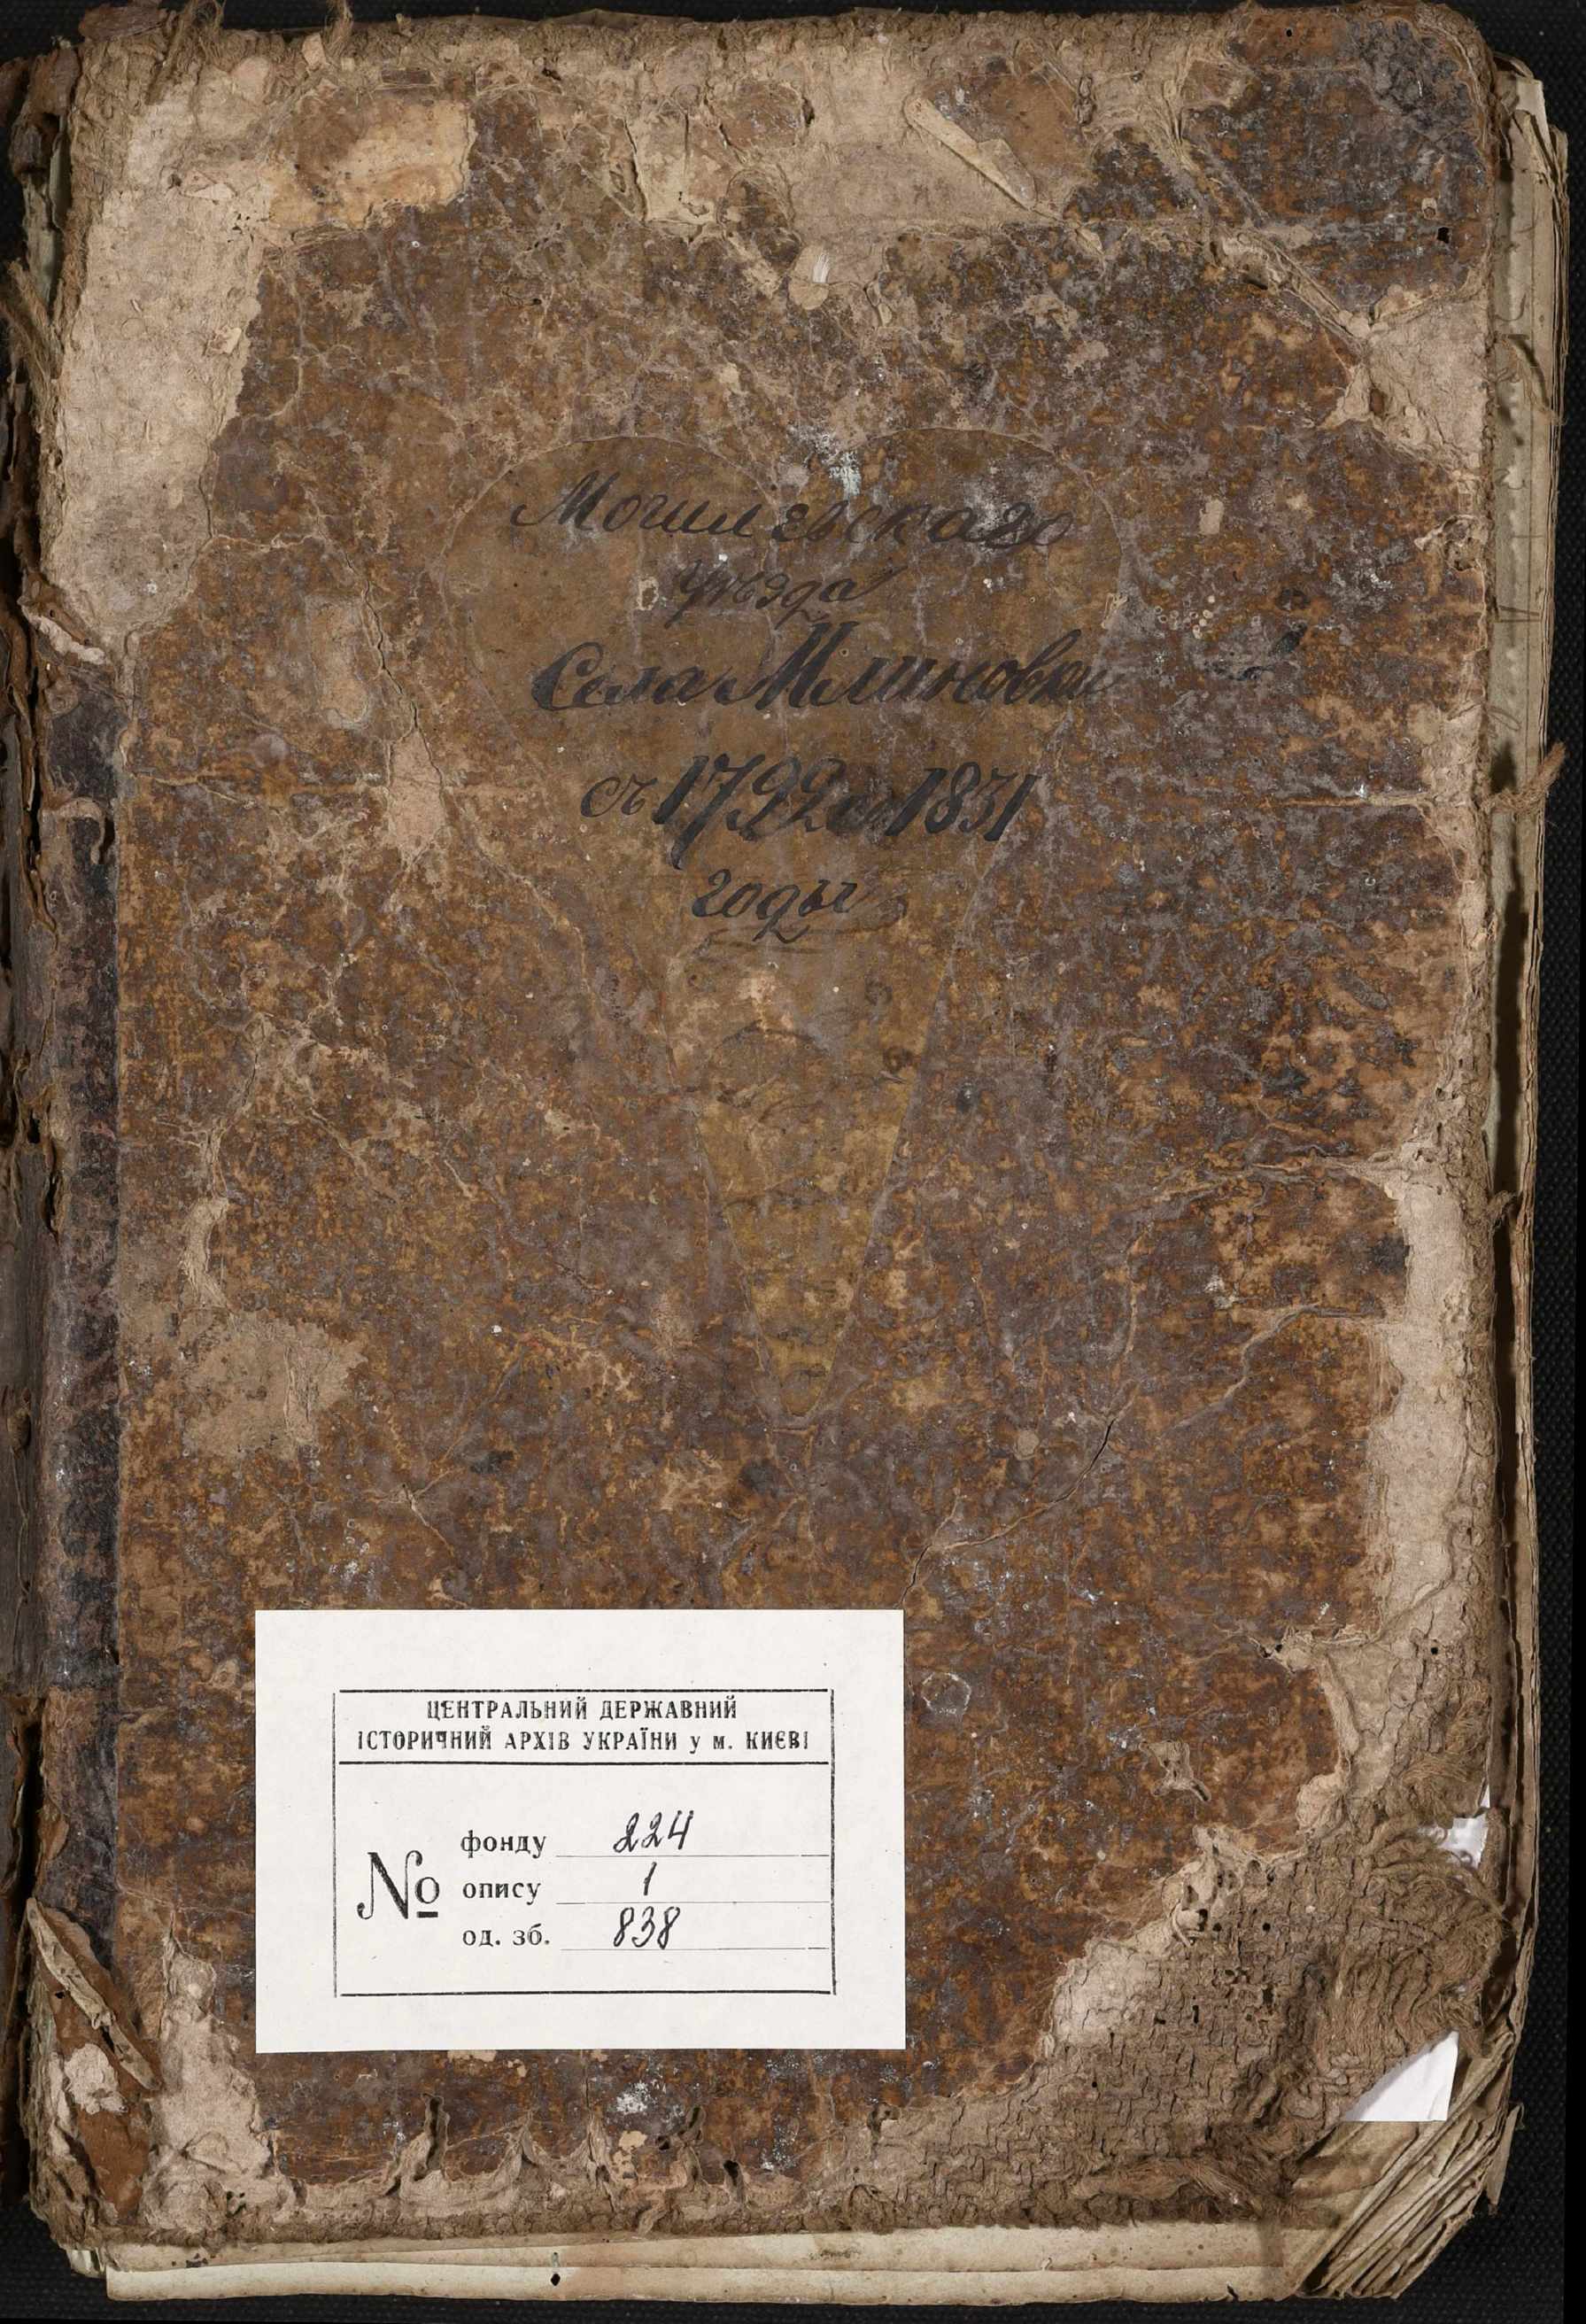 Могилевскаго
уѣзда
Села Млиновки
съ 1792 по 1831
годы
ЦЕНТРАЛЬНИЙ ДЕРЖАВНИЙ
ІСТОРИЧНИЙ АРХІВ УКРАЇНИ у м. КИЄВІ
№
фонду 224
опису 1
од. зб. 838